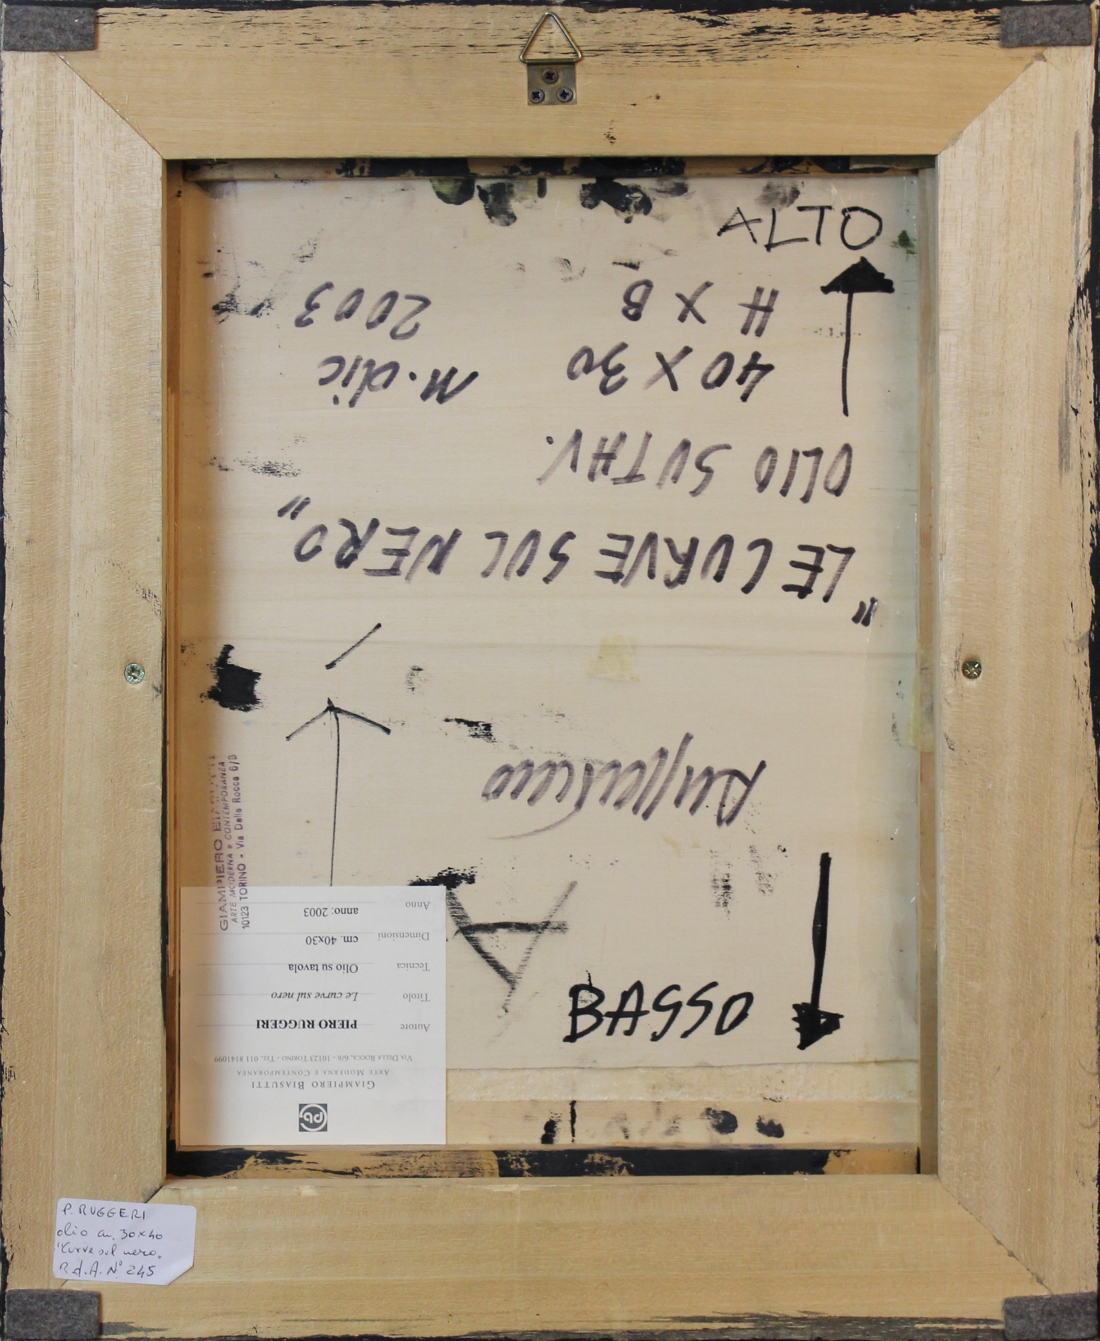 ALTO
BASSO
"LE CURVE SUL NERO"
OLIO SU TAV.
40 X 30
H X B
M. olic
2003
GIAMPIERO
ARTE MODERNA E CONTEMPORANEA
10123 TORINO - Via Della Rocca 6/B
GIAMPIERO BIASUTTI
ARTE MODERNA E CONTEMPORANEA
VIA DELLA ROCCA, 6/B - 10123 TORINO - TEL. 011 8141099
Autore PIERO RUGGERI
Titolo Le curve sul nero
Tecnica Olio su tavola
Dimensioni cm. 40x30
Anno anno: 2003
P. RUGGERI
olio cm. 30x40
"Curve sul nero"
R.d.A. N° 245